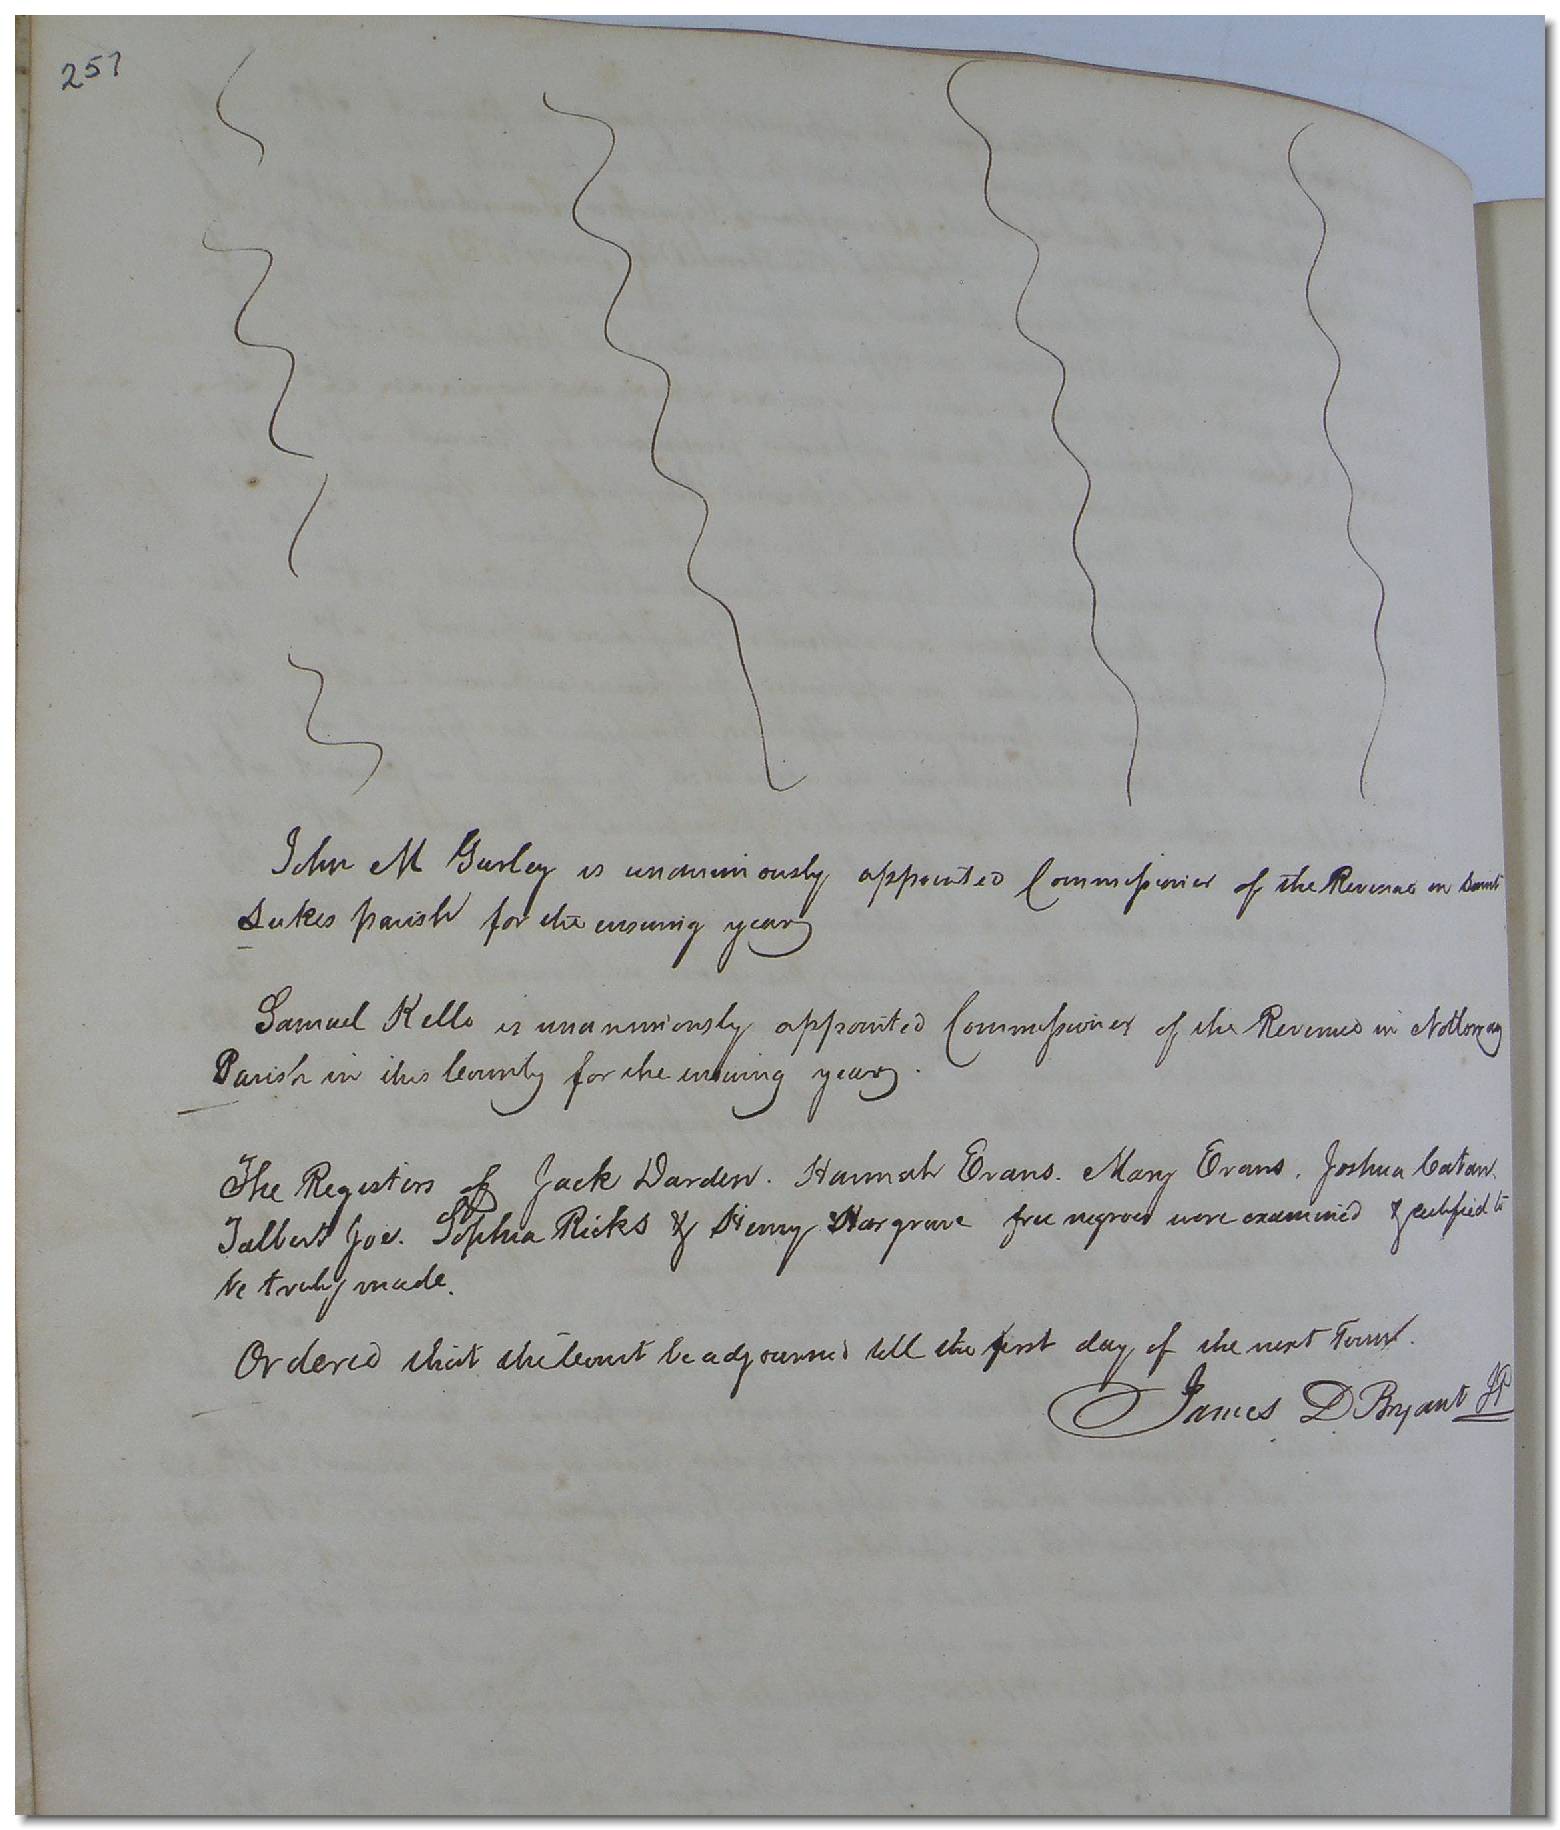 257
John M Gurley is unanimously appointed Commissioner of the Revenue in Saint
Lukes parish for the ensuing year
Samuel Kello is unanimously appointed Commissioner of the Revenue in Nottoway
Parish in this County for the ensuing year.
The Registers of Jack Darden. Hannah Evans. Mary Evans. Joshua Catan.
Talbert Joe. Sophia Ricks & Henry Hargrave free negroes were examined & certified to
be truly made.
Ordered that the Court be adjourned till the first day of the next Term.
James D Bryant JP